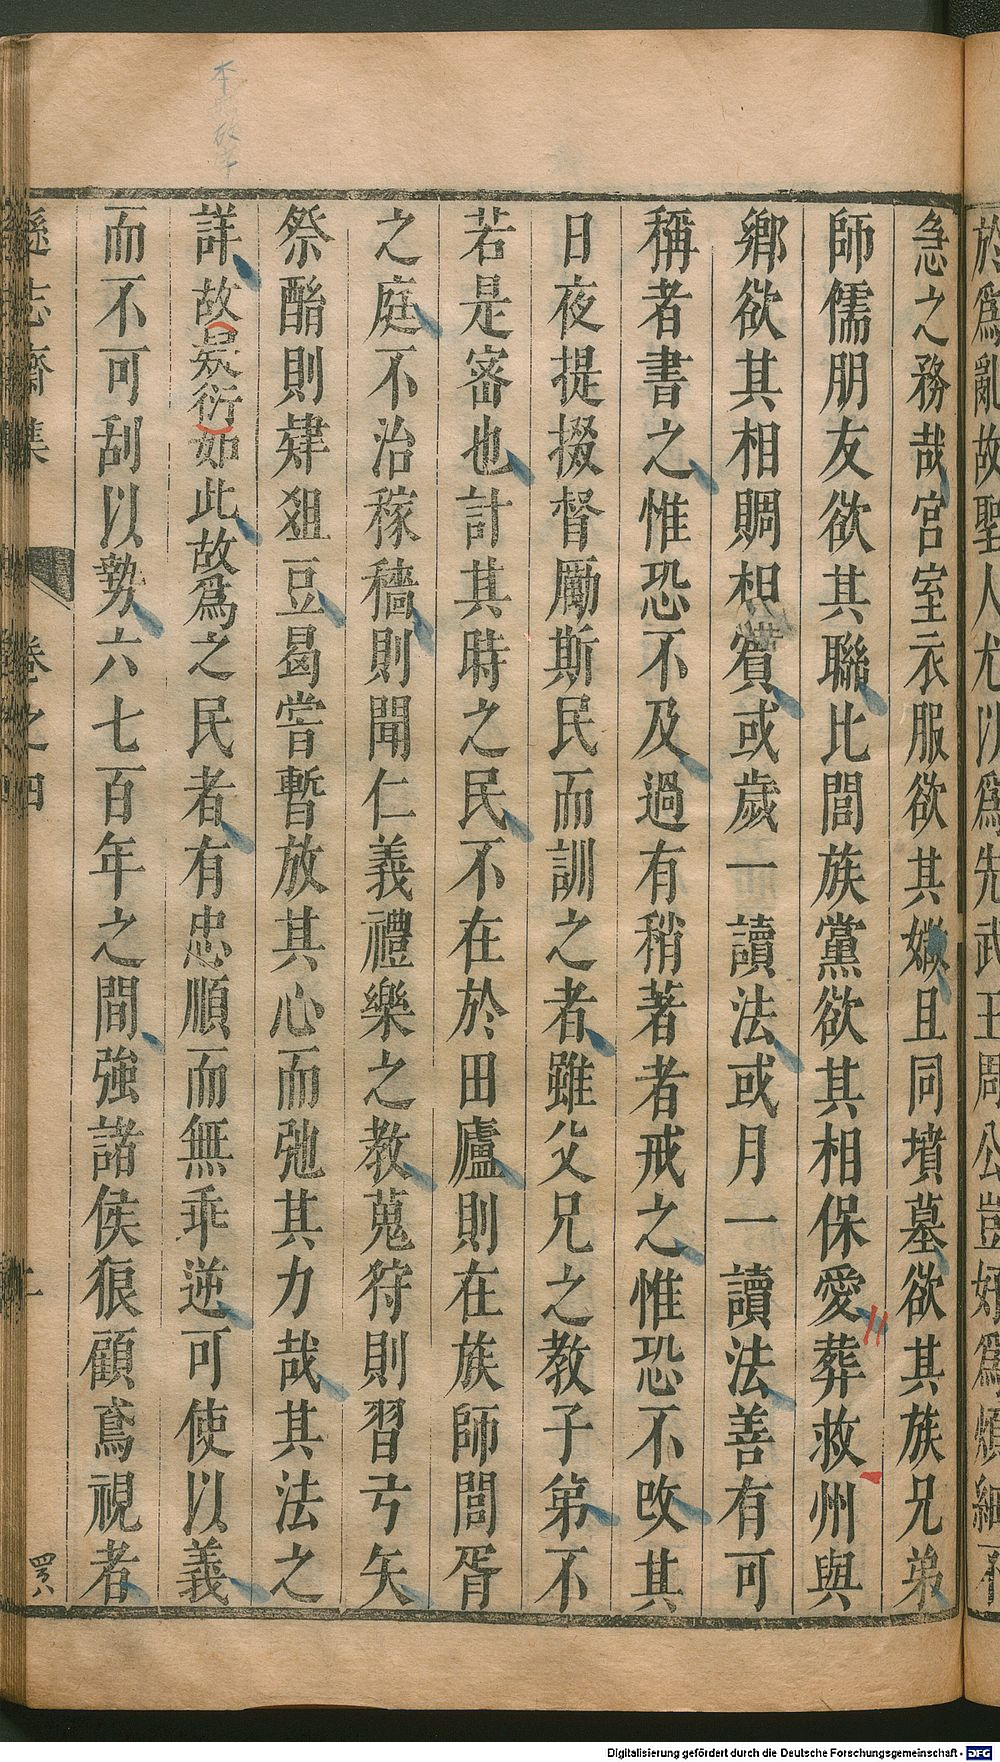 於爲亂故聖人尤以爲先武王周公豈好爲煩細不
急之務哉宮室衣服欲其媺且同墳墓欲其族兄弟
師儒朋友欲其聯比閭族黨欲其相保愛葬救州與
鄉欲其相賙相賓或歲一讀法或月一讀法善有可
稱者書之惟恐不及過有稍著者戒之惟恐不改其
日夜提掇督勵斯民而訓之者雖父兄之教子弟不
若是密也計其時之民不在於田廬則在族師閭胥
之庭不治稼穡則聞仁義禮樂之教蒐狩則習弓矢
祭酺則肄俎豆曷嘗暫放其心而弛其力哉其法之
詳故如此故爲之民者有忠順而無乖逆可使以義
而不可刮以勢六七百年之間強諸侯狼顧鳶視者
遜志齋集
卷之四
本
Digitalisierung gefördert durch die Deutsche Forschungsgemeinschaft - DFG